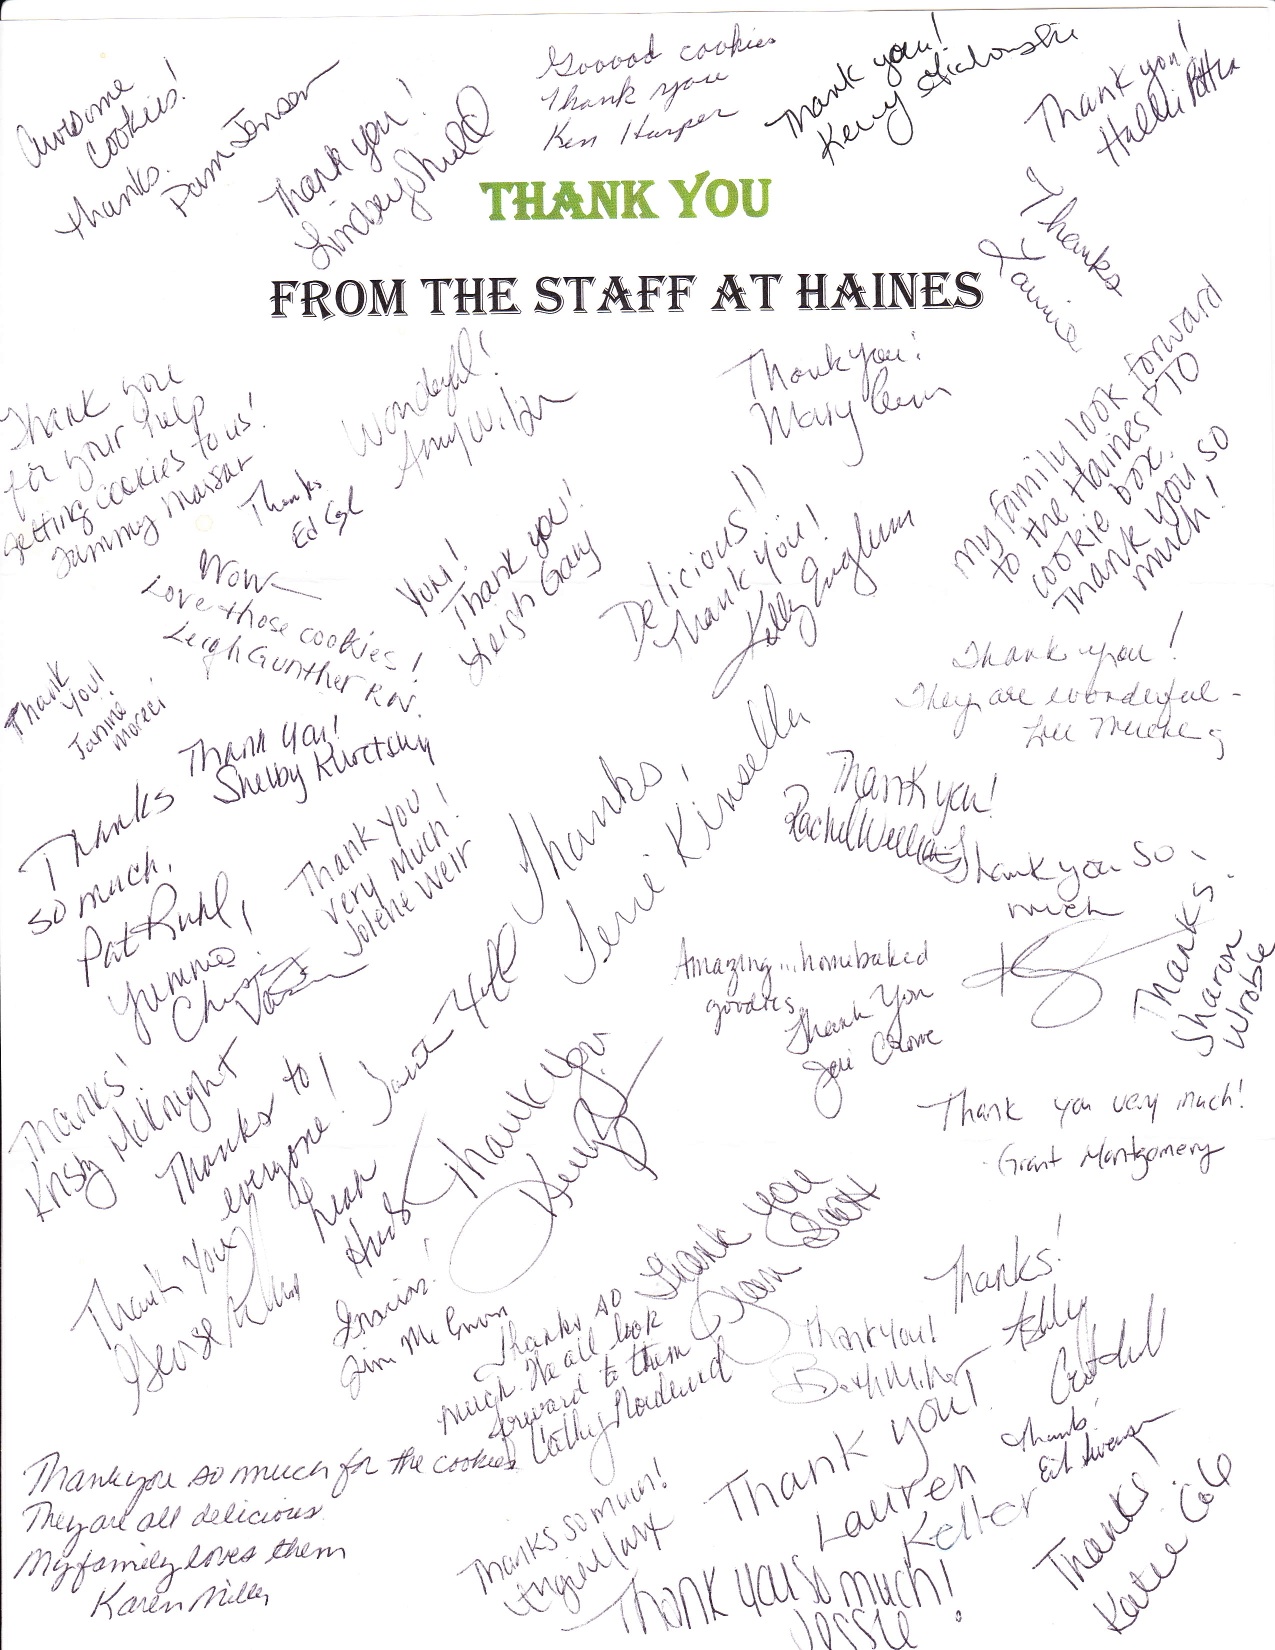 Awesome
cookies!
thanks.
Pam Jensen
Thank you!
Lindsey Shield
Gooood cookies
Thank you
Ken Harper
Thank you!
Kerry
Thank you!
Hallie
THANK YOU
FROM THE STAFF AT HAINES
Thanks
Laurie
Thank you
for your help
getting cookies to us!
Tammy
Wonderful!
Amy
Thanks
Ed
Thank you!
Mary
My family look forward
to the Haines PTO
cookie box.
Thank you so
much!
Wow
Love those cookies!
Leigh Gunther RN.
Yum!
Thank you!
Leigh Gary
Delicious!!
Thank you!
Kelly Englum
Thank you!
They are wonderful -
Thank
you!
Janine
Thank you!
Shelby
Thanks
so much,
Pat Ruhl
Thank you
very much!
Jolene Weir
Thanks,
Terri Kinsella
Thank you!
Rachel
Thank you so
much
Yummie!
Amazing...homebaked
goodies
Thank You
Jeri Crowe
Thanks.
Sharon
Wroble
Thanks!
Kristy McKnight
Thanks to
everyone!
Leah
Thank You
Thank you very much!
Grant Montgomery
Thank you
George
Gracias!
Jim
Thanks so
much. We all look
forward to them
Cathy
Thank you
Jean Scott
Thank you!
Beth
Thanks!
Ashley
Thanks!
Thank you so much for the cookies
They are all delicious
My family loves them
Karen Miller
Thanks so much!
Angie Marx
Thank you!
Lauren
Keller
Thanks
Katie Cole
Thank you so much!
Jessie